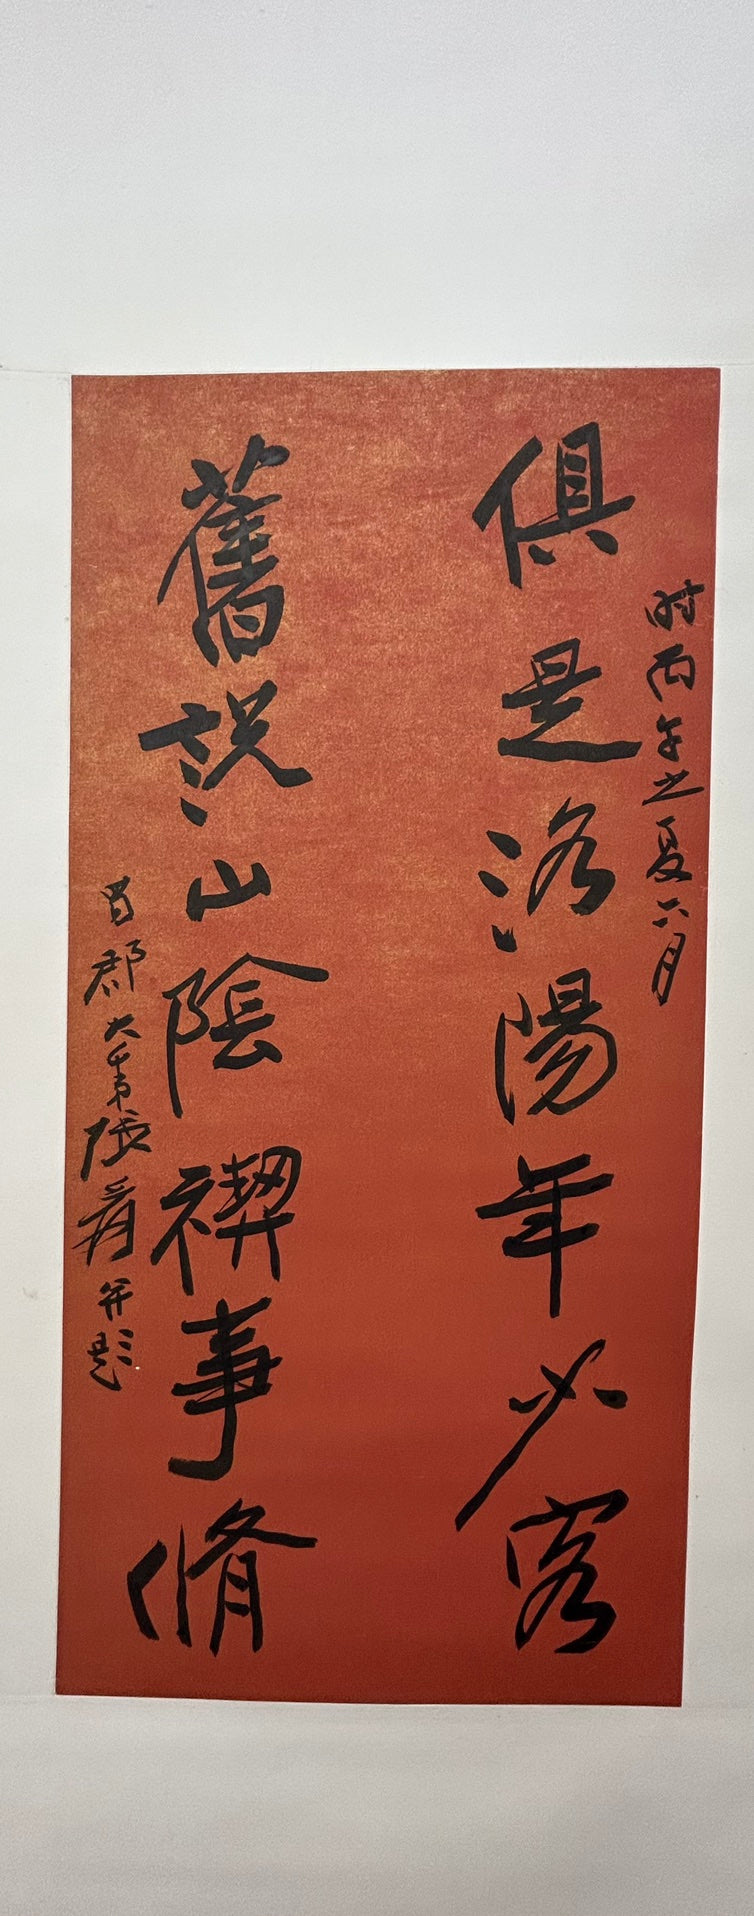 时丙午之夏六月
俱是洛陽年少客
舊説山陰禊事脩
蜀郡大千弟張爰并題